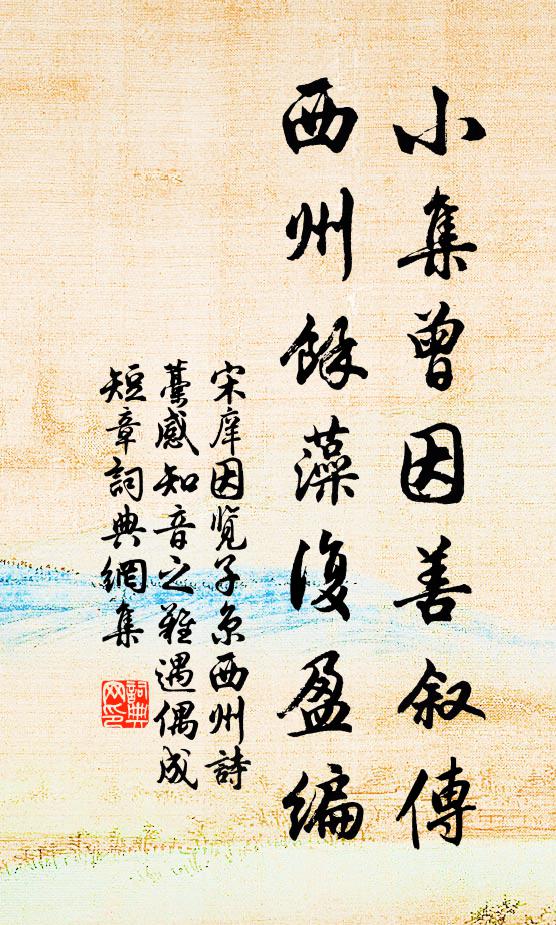 小集曾因善叙傳
西州餘藻復盈編
宋庠因覧子京西州詩
藁感知音之難遇偶成
短章詞典網集
詞典網印